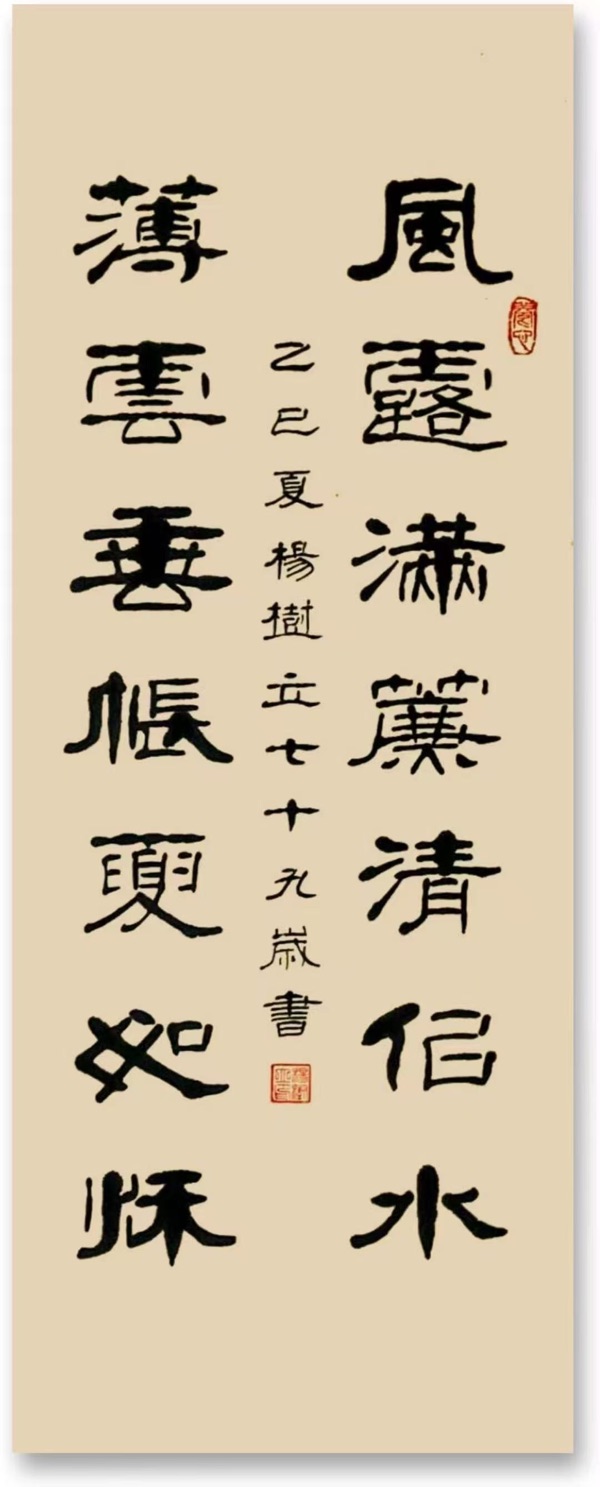 風露滿簾清佀水
薄雲垂帳夏如秋
乙巳夏楊樹立七十九歲書